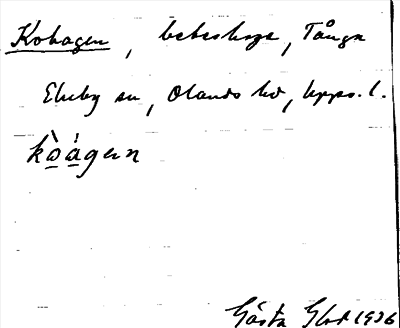 Kohagen, beteshage, Tånga
Ekeby sn, Olands hd, Upps. l.
kòágen
Gösta 1936